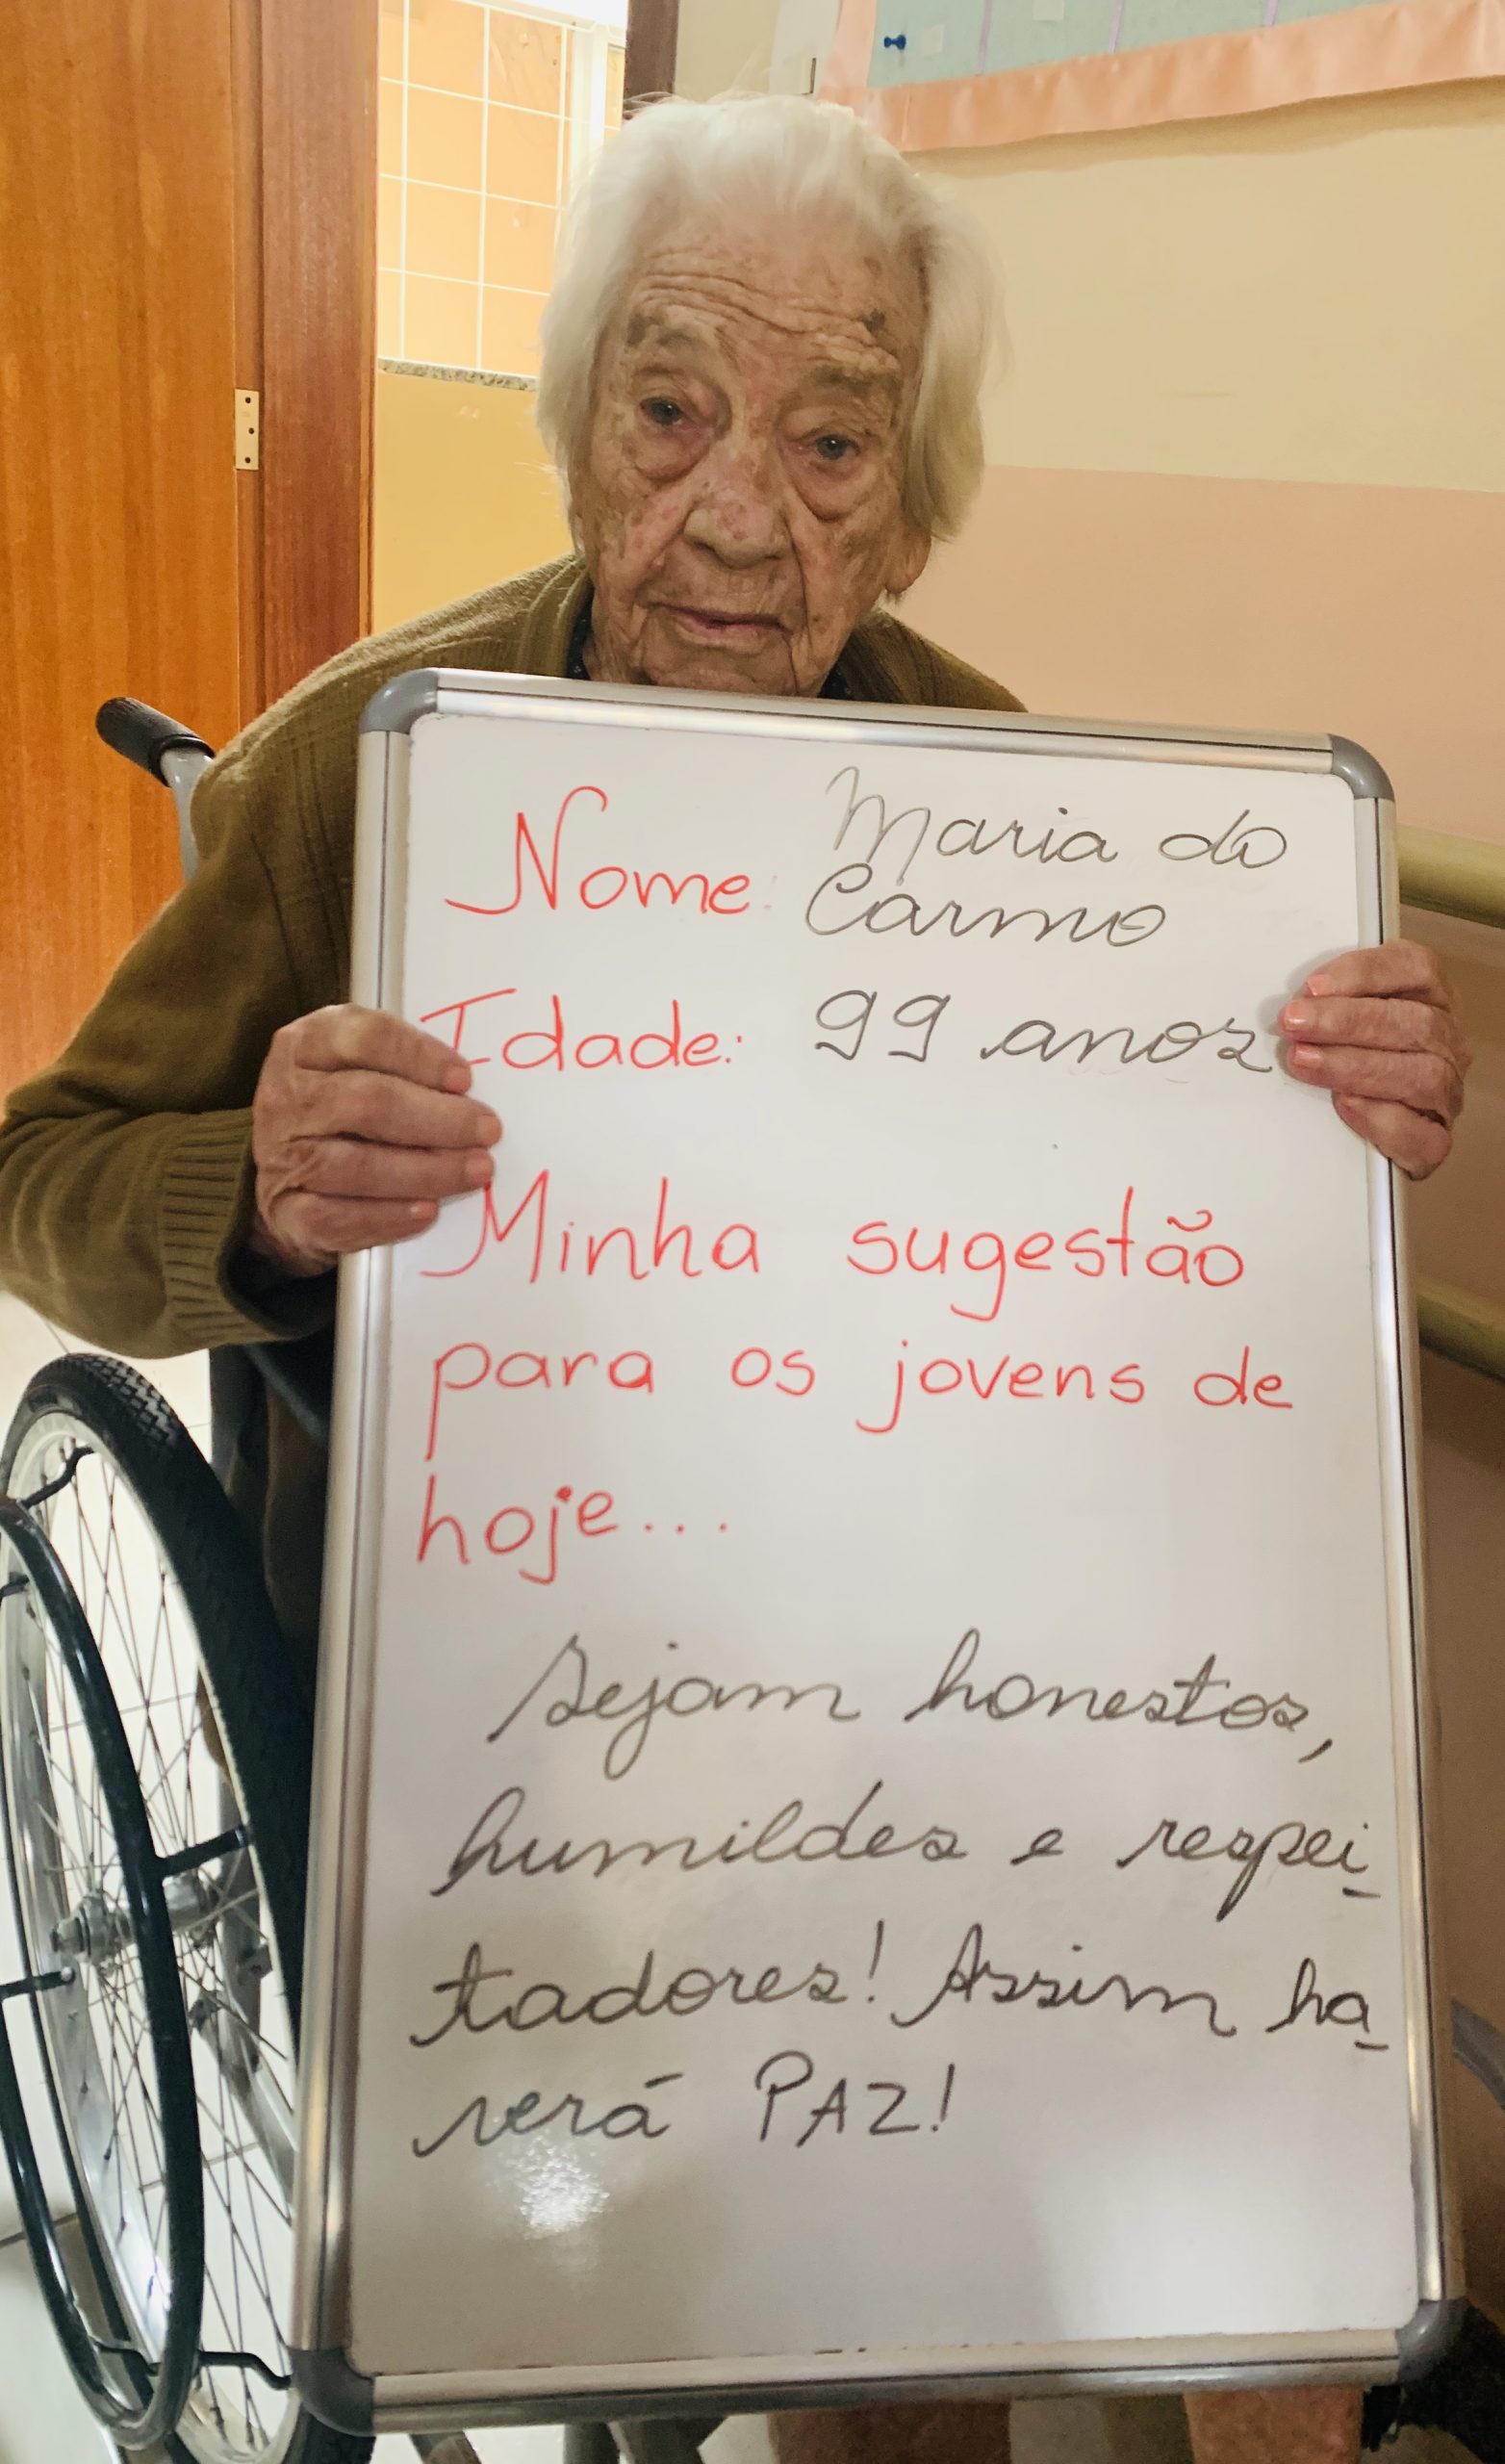 Nome: Maria do
Carmo
Idade: 99 anos
Minha sugestão
para os jovens de
hoje...
sejam honestos,
humildes e respei-
tadores! Assim ha-
verá PAZ!